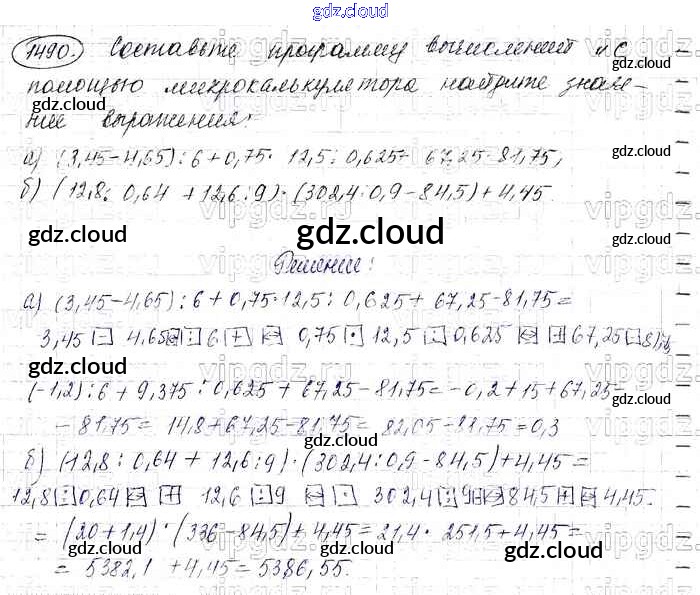 gdz.cloud
1490. Составьте программу вычислений и с
помощью микрокалькулятора найдите значе-
ние выражения:
а) (3,45-4,65):6+0,75·12,5:0,625+67,25-81,75;
б) (12,8:0,64+12,6:9)·(302,4:0,9-84,5)+4,45.
Решение:
а) (3,45-4,65):6+0,75·12,5:0,625+67,25-81,75=
3,45 4,65 6 0,75 12,5 0,625 67,25 81,75
(-1,2):6+9,375:0,625+67,25-81,75=-0,2+15+67,25=
-81,75=14,8+67,25-81,75=82,05-81,75=0,3
б) (12,8:0,64+12,6:9):(302,4:0,9-84,5)+4,45=
12,8 0,64 12,6 9 302,4 9 84,5 4,45.
=(20+1,4)·(336-84,5)+4,45=21,4·251,5+4,45=
=5382,1+4,45=5386,55.